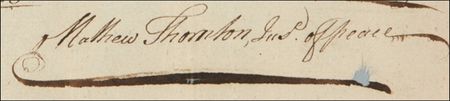 Mathew Thornton, Jus. of peace